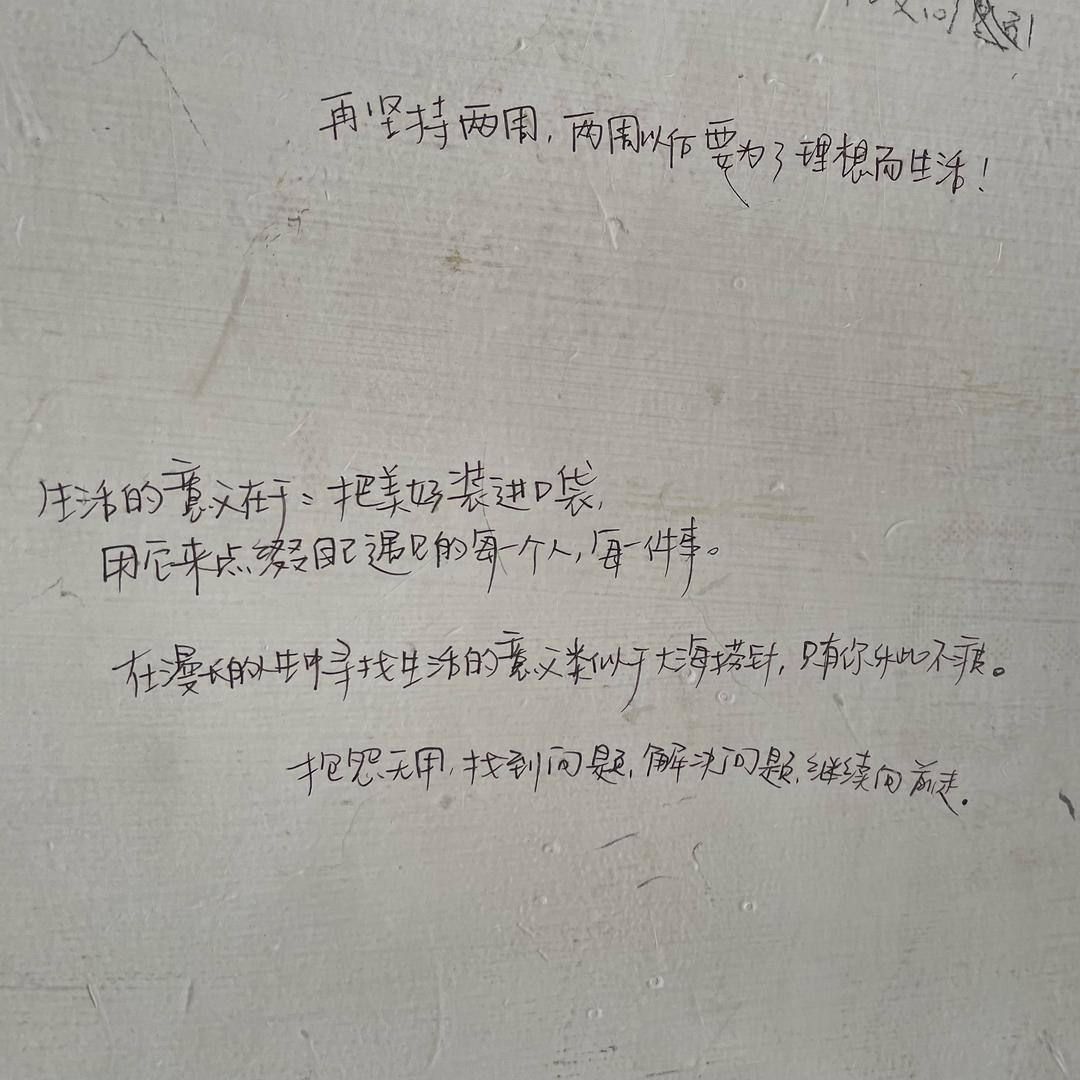 再坚持两周,两周以后要为了理想而生活!
生活的意义在于:把美好装进口袋,
用后来点缀自己遇见的每一个人,每一件事。
在漫长的人生中寻找生活的意义类似于大海捞针,只有你乐此不疲。
抱怨无用,找到问题,解决问题,继续向前走.